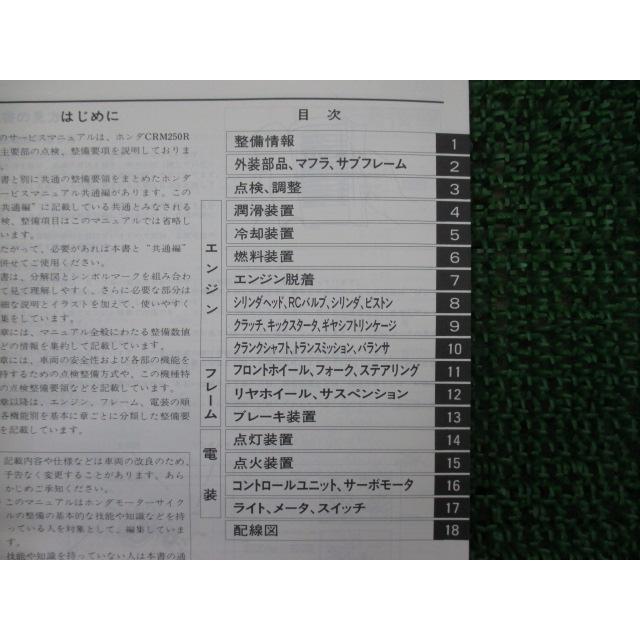 はじめに
のサービスマニュアルは、ホンダCRM250R
主要部の点検、整備要項を説明しておりま
書と別に共通の整備要領をまとめたホンダ
ービスマニュアル共通編があります。この
共通編"に記載している共通とみなされる
検、整備項目はこのマニュアルでは省略し
います。
たがって、必要があれば本書と"共通編"
併せてご使用ください。
書は、分解図とシンボルマークを組み合わ
て見て理解しやすく、さらに必要な部分は
細な説明とイラストを加えて、使いやすく
集をしています。
章には、マニュアル全般にわたる整備数値
どの情報を集約して記載しています。
章には、車両の安全性および各部の機能を
持するための点検整備方式や、この機種特
の点検整備要領などを記載しています。
章以降は、エンジン、フレーム、電装の順
各機能別を基本に章ごとに分類した整備要
を記載しています。
記載内容や仕様などは車両の改良のため、
予告なく変更することがあります。あら
かじめご承知ください。
このマニュアルはホンダモーターサイク
ルの整備の基本的な技能や知識などを持
っている人を対象として、編集していま
す。
技能や知識を持っていない人は本書の通
目 次
整備情報 1
外装部品、マフラ、サブフレーム 2
点検、調整 3
エンジン
潤滑装置 4
冷却装置 5
燃料装置 6
エンジン脱着 7
シリンダヘッド、RCバルブ、シリンダ、ピストン 8
クラッチ、キックスタータ、ギヤシフトリンケージ 9
クランクシャフト、トランスミッション、バランサ 10
フレーム
フロントホイール、フォーク、ステアリング 11
リヤホイール、サスペンション 12
ブレーキ装置 13
電装
点灯装置 14
点火装置 15
コントロールユニット、サーボモータ 16
ライト、メータ、スイッチ 17
配線図 18